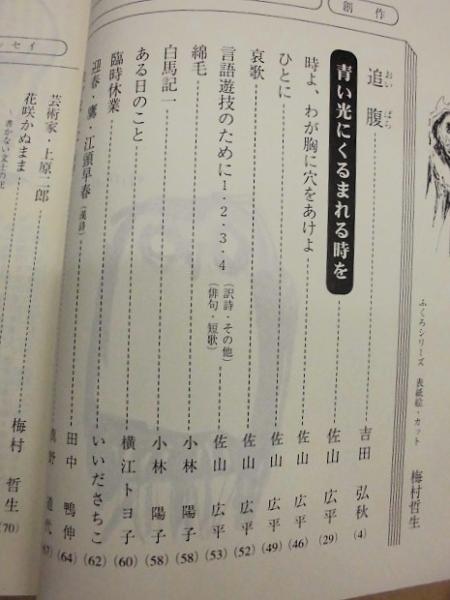 創作
ふくろシリーズ 表紙絵・カット 梅村哲生
追腹 吉田弘秋 (4)
おいばら
青い光にくるまれる時を 佐山広平 (29)
時よ、わが胸に穴をあけよ 佐山広平 (46)
ひとに 佐山広平 (49)
哀歌 佐山広平 (52)
言語遊技のために1・2・3・4 (訳詩・その他) (俳句・短歌) 佐山広平 (53)
綿毛 小林陽子 (58)
白馬記一 小林陽子 (58)
ある日のこと 横江トヨ子 (60)
臨時休業 いいださちこ (62)
迎春・鷹・江頭早春 (漢詩) 田中鴨伸 (64)
ッセイ
芸術家・上原二郎 野道代
花咲かぬまま 梅村哲生 (70)